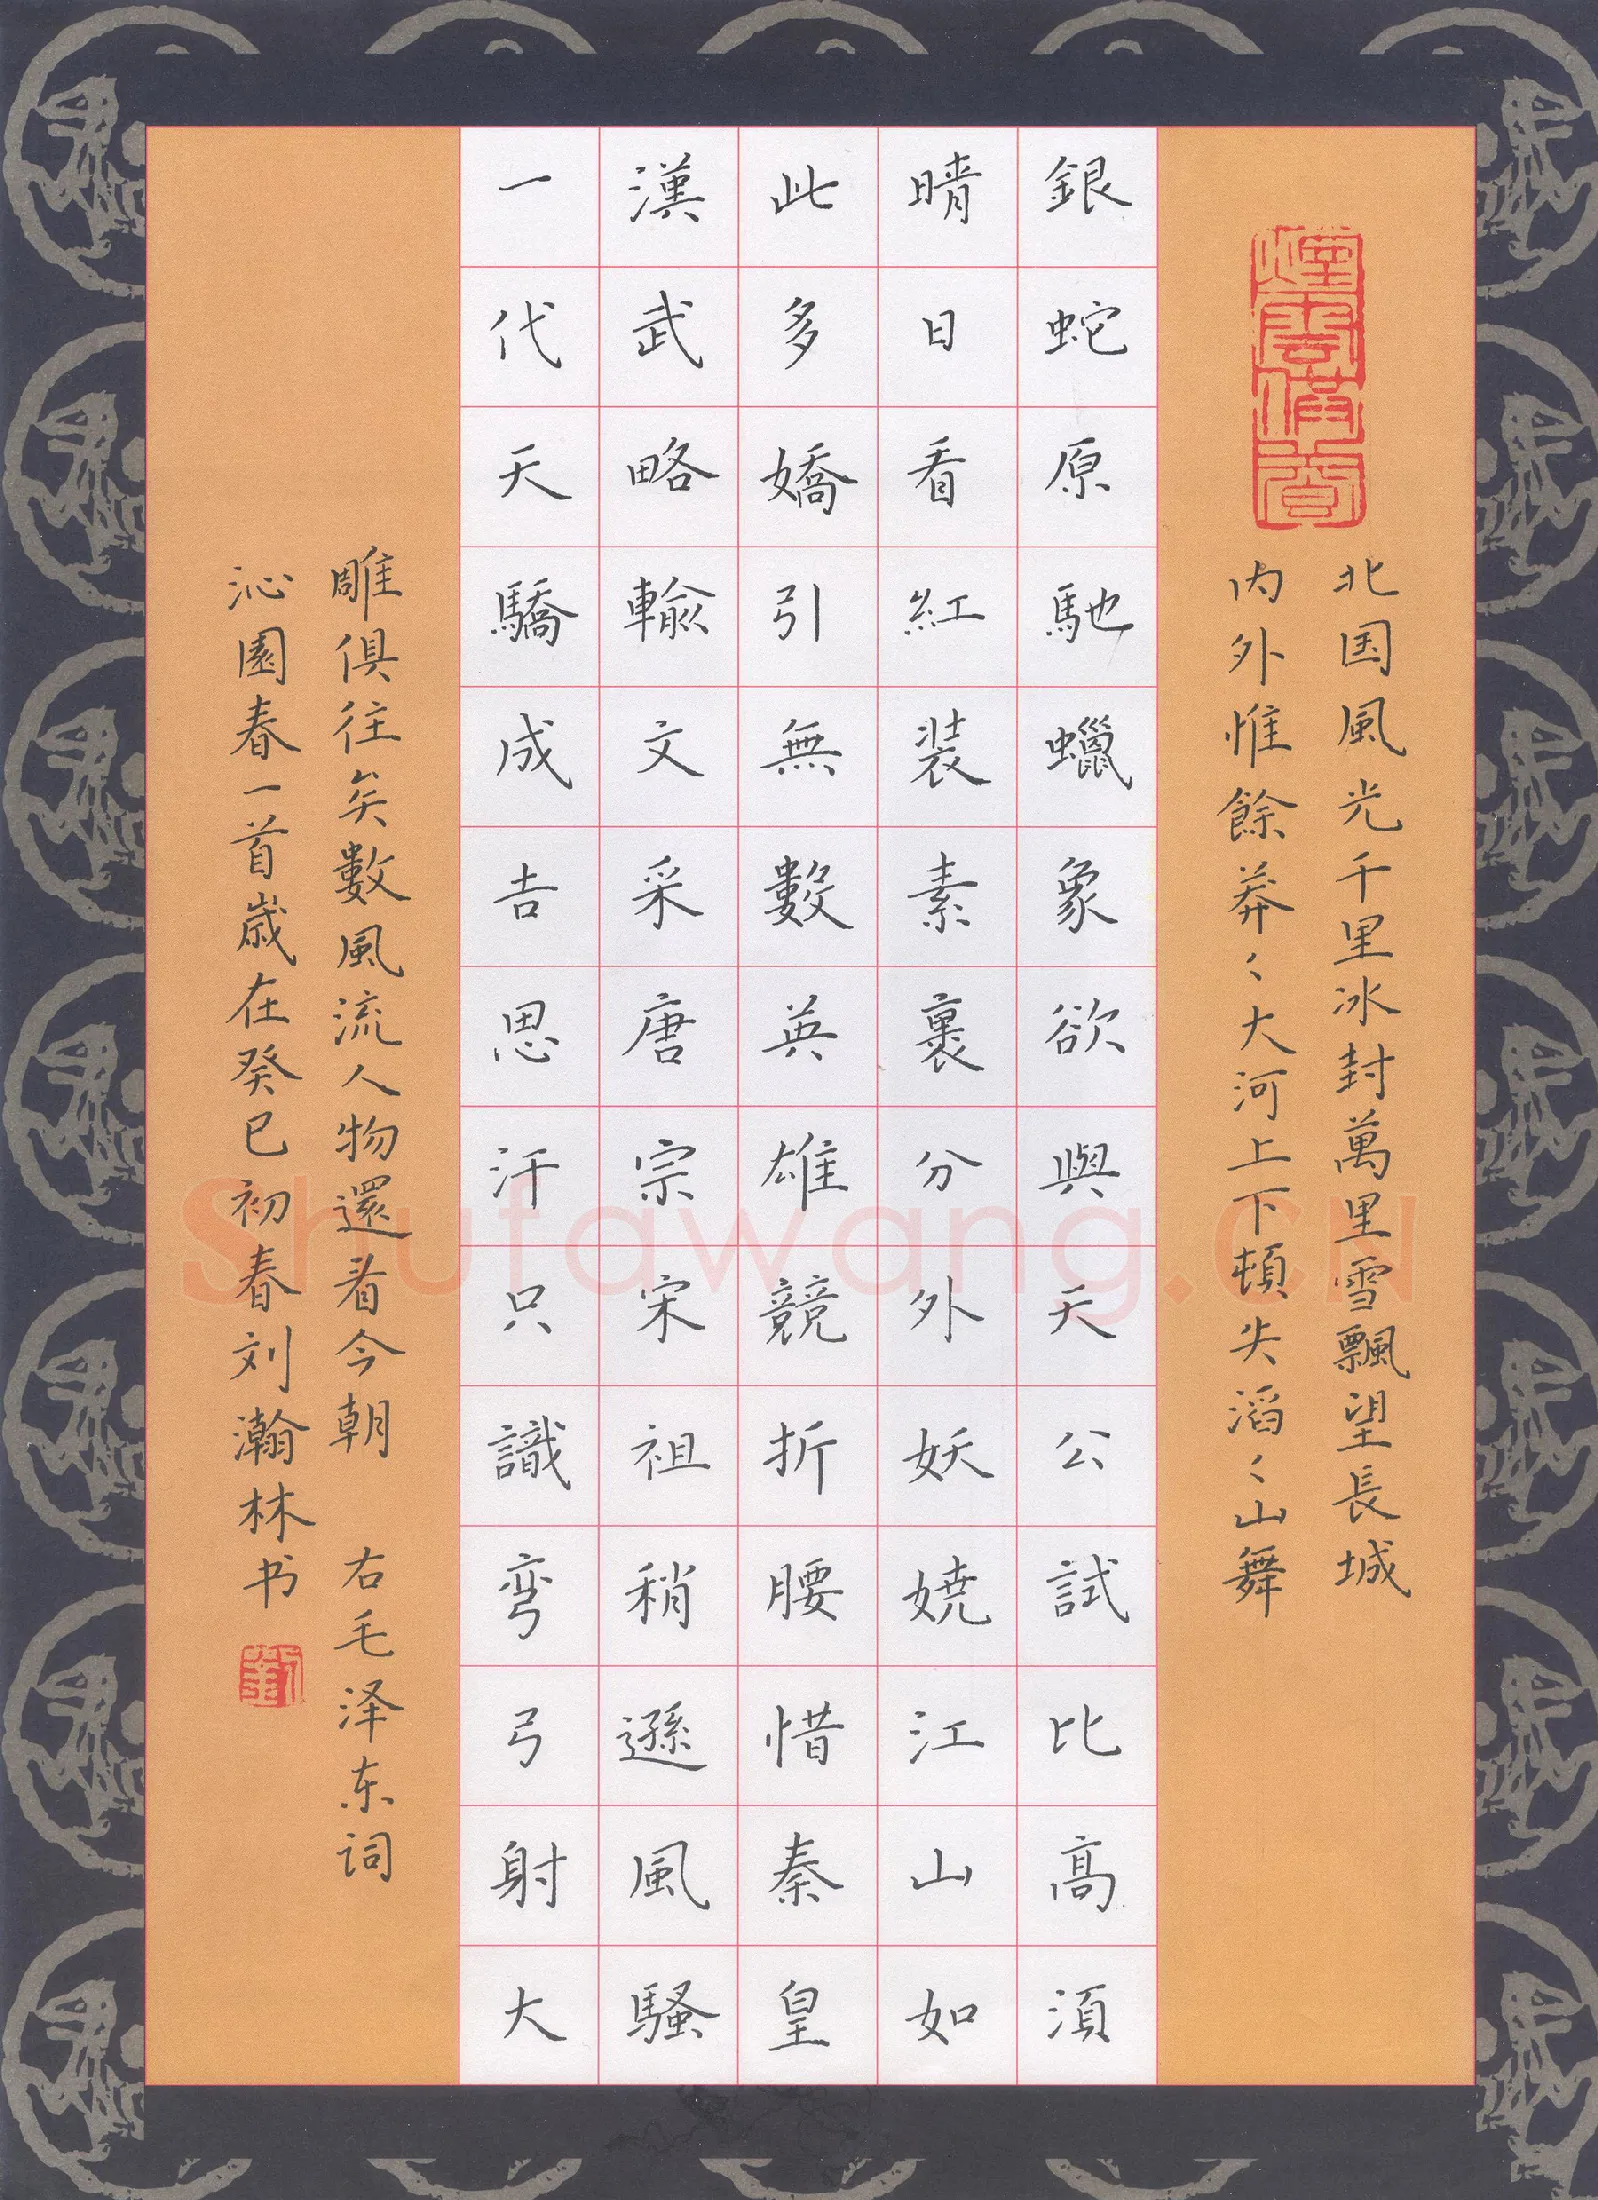 北国風光千里冰封萬里雪飄望長城
内外惟餘莽〻大河上下頓失滔〻山舞
銀蛇原馳蠟象欲與天公試比高須
晴日看紅装素裹分外妖嬈江山如
此多嬌引無數英雄競折腰惜秦皇
漢武略輸文采唐宗宋祖稍遜風騷
一代天驕成吉思汗只識弯弓射大
雕俱往矣數風流人物還看今朝 右毛泽东词
沁園春一首歲在癸巳初春刘瀚林书
Shufawang.CN